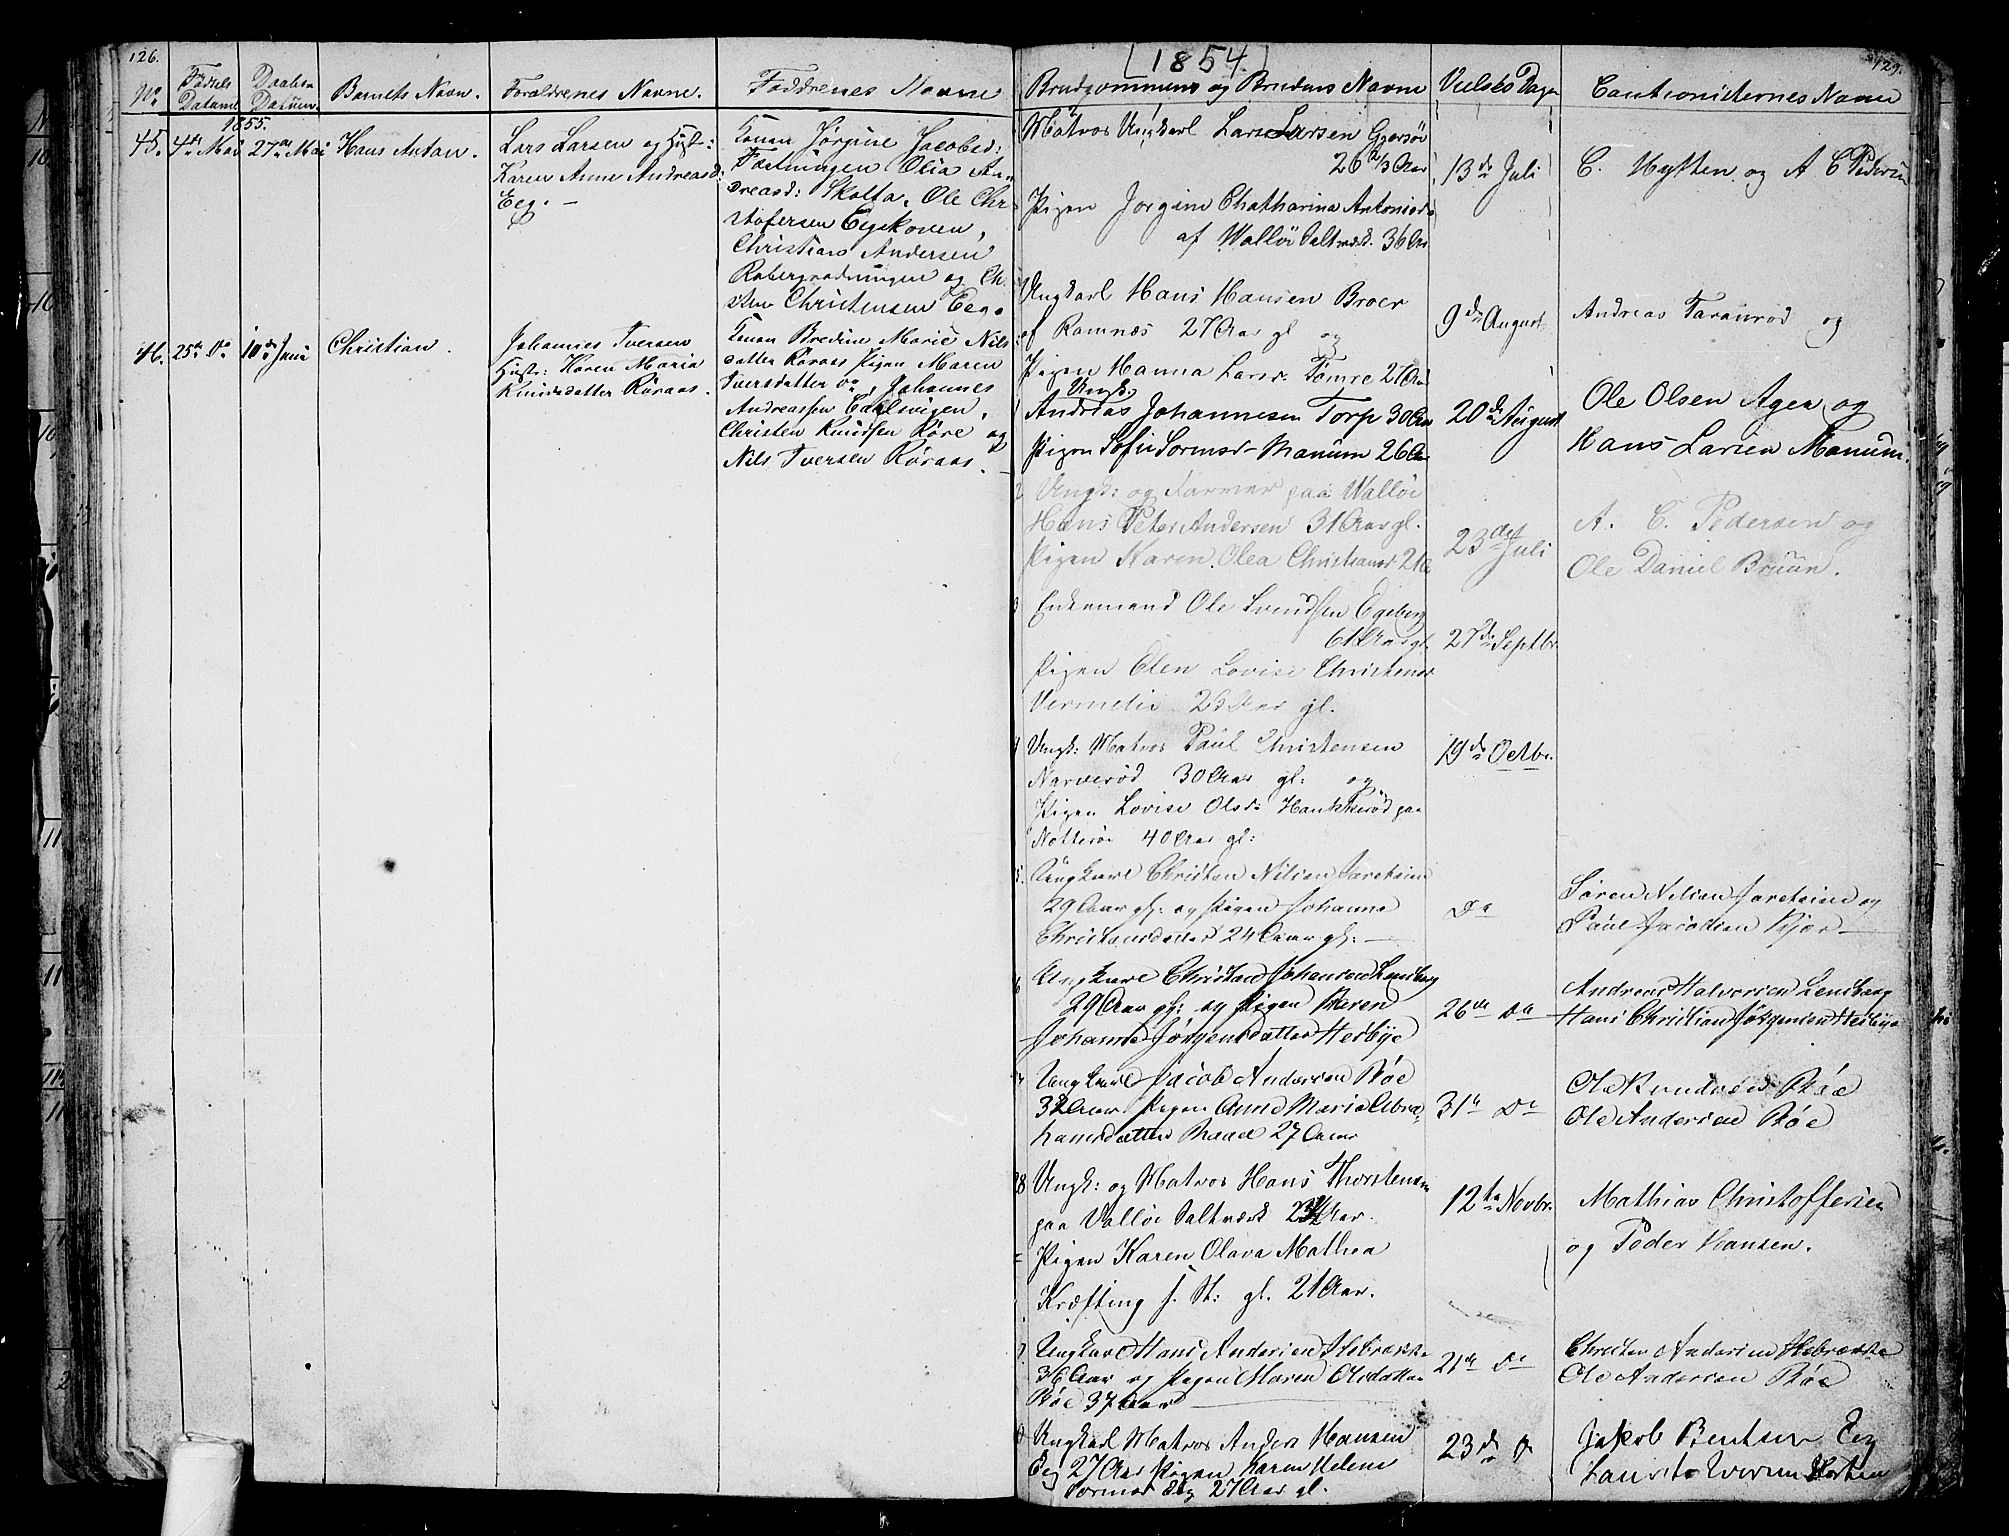 126.
No.
Fødsels
Datum
Daabs
Datum
Barnets Navn.
Forældrenes Navne.
Faddrenes Navne
1855.
45. 4de Mai 27de Mai Hans Anton.
Lars Larsen og Hust:
Karen Anne Andreasd:
Eeg. —
Konen Jørgine Jacobsd:
Olia An-
dreasd: Skolta, Ole Chri
stofersen Egeskoven,
Christian Andersen
og Ch
Christensen Eeg.
46. 25de Do 10de Juni Christian.
Johannes Iversen
Hust: Karen Maria
Knudsdatter Røraas.
Konen Bredine Marie Nils
datter Røraas Pigen Maren
Iversdatter do, Johannes
Andreassen Carlsvigen,
Christen Knudsen Røre og
Nils Iversen Røraas.
[1854]
129.
Brudgommens og Brudens Navne
Vielses Dage
Cautionisternes Navne
Matros Ungkarl Lars Larsen Gjersøe
26 2/3 Aar
Pigen Jørgine Chatharina Antonisd
af Valløe Saltværk. 36 Aar
13de Juli
C. Hytten og A C Pedersen
Ungkarl Hans Hansen Broer
af Ramnæs 27 Aar gl og
Pigen Hanna Larsd. Tømre 21 Aar
9de August
Andreas Taranrød og
Ungk.
Andreas Johannesen Torp 30 Aar
Pigen Sofie Sørensd Manum 26 A
20de August
Ole Olsen Agea og
Hans Larsen Manum.
2 Ungk: og Farmer paa Walløe
Hans Peter Andersen 31 Aar gl.
Pigen Karen Olea Christiansd 21 A
23de Juli
A. C. Pedersen og
Ole Daniel Bruun.
3 Enkemand Ole Svendsen Egeberg
61 Aar gl.
Pigen Elen Lovise Christensd
Vermelie 23 Aar gl.
27de Septbr.
4 Ungk: Matros Paul Christensen
Narverød 30 Aar gl: og
Pigen Lovise Olsd: Haukkerød paa
Nøtterøe 40 Aar gl:
19de Octbr.
5. Ungkarl Christen Nilsen Jareteien
29 Aar gl: og Pigen Johanne
Christensdatter 24 Aar gl: —
Do
Søren Nilsen Jareteien og
Paul Jacobsen Kjær —
6 Ungkarl Christian Johansen Lensberg
29 Aar gl: og Pigen Maren
Johanne Jørgensdatter Hesbye
26de Do
Andreas Halvorsen Lensberg
Hans Christian Jørgensen Hesbye
7 Ungkarl Jacob Andersen Røe
32 Aar Pigen Anne Maria Abra-
hamsdatter 27 Aar
31te Do
Ole Knudsen Røe
Ole Andersen Røe
8 Ungk: og Matros Hans Thorstensen
paa Valløe Saltværk 23 1/2 Aar.
Pigen Karen Olava Mathea
Kræfting f. St: gl. 21 Aar.
12te Novbr.
Mathias Christoffersen
og Peder Hansen.
9 Ungkarl Hans Andersen Hebrække
36 Aar og Pigen Maren Olsdatter
Røe 37 Aar
21de Do
Christen Andersen Hebrække
Ole Andersen Røe
0 Ungkarl Matros Anders Hansen
Eeg 27 Aar Pigen Karen Helene
Sørensd Eeg 27 Aar gl.
23de Do
Jakob Bentsen Eeg
Laurits Iversen Horten